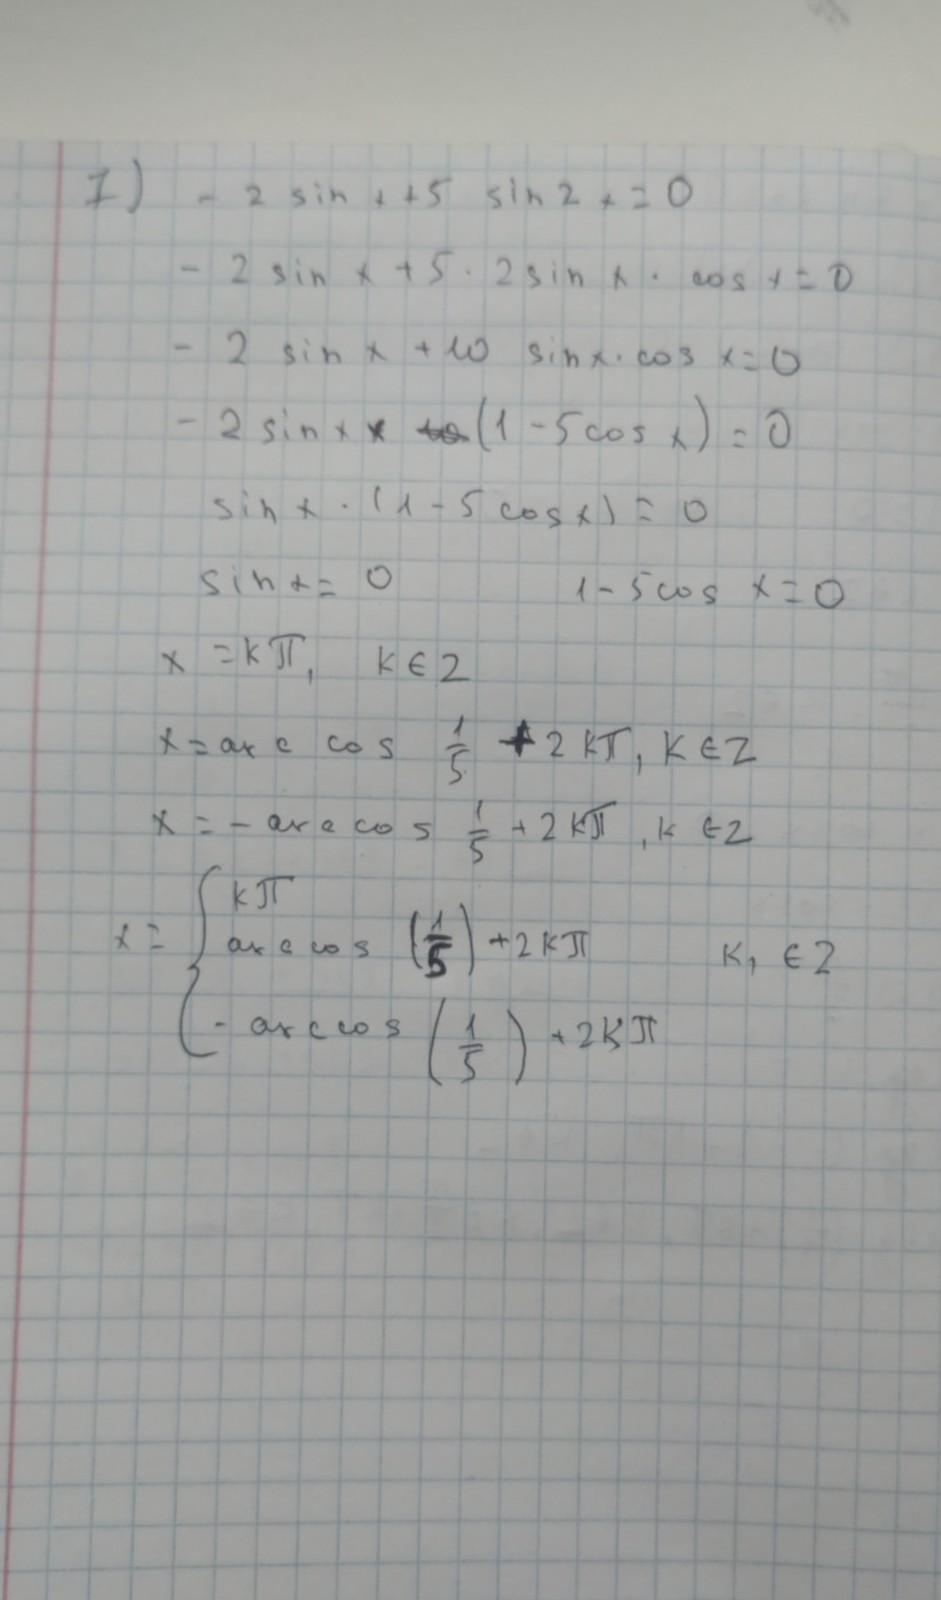 1) - 2 sin x + 5 sin 2 x = 0
- 2 sin x + 5 · 2 sin x · cos x = 0
- 2 sin x + 10 sin x · cos x = 0
- 2 sin x x (1 - 5 cos x) = 0
sin x · (1 - 5 cos x) = 0
sin x = 0 1 - 5 cos x = 0
x = kπ, k ∈ Z
x = arc cos 1/5 + 2 kπ, k ∈ Z
x = - arc cos 1/5 + 2 kπ, k ∈ Z
x = { kπ
arc cos (1/5) + 2 kπ k, ∈ Z
- arc cos (1/5) + 2 kπ